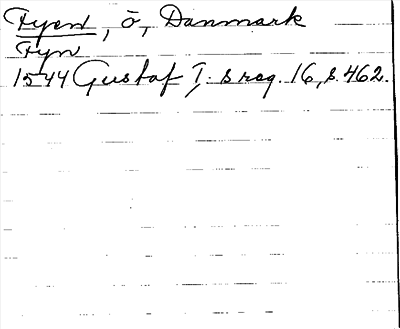 Fyen, ö, Danmark
Fyn
1544 Gustaf I:s reg. 16, s. 462.